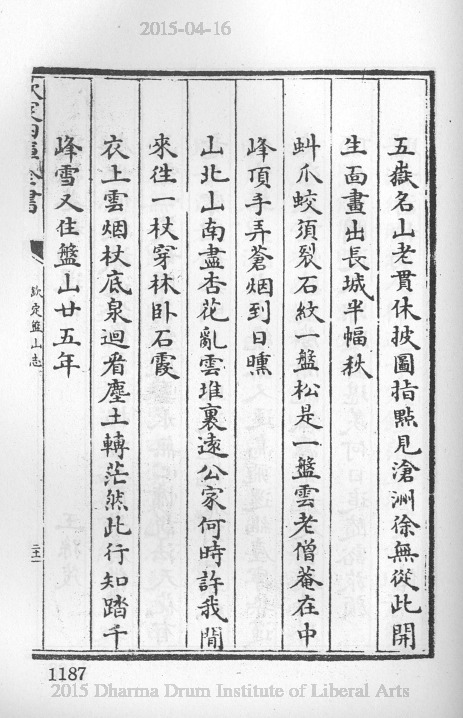 2015-04-16
五嶽名山老貫休披圖指㸃見滄洲徐無從此開
生面畫出長城半幅秋
虯爪蛟須裂石紋一盤松是一盤雲老僧菴在中
峰頂手弄蒼烟到日曛
山北山南盡杏花亂雲堆裏逺公家何時許我閒
來徃一杖穿林卧石霞
衣上雲烟杖底泉迴看塵土轉茫然此行知踏千
峰雪又住盤山廿五年
欽定四庫全書
欽定盤山志
1187
2015 Dharma Drum Institute of Liberal Arts